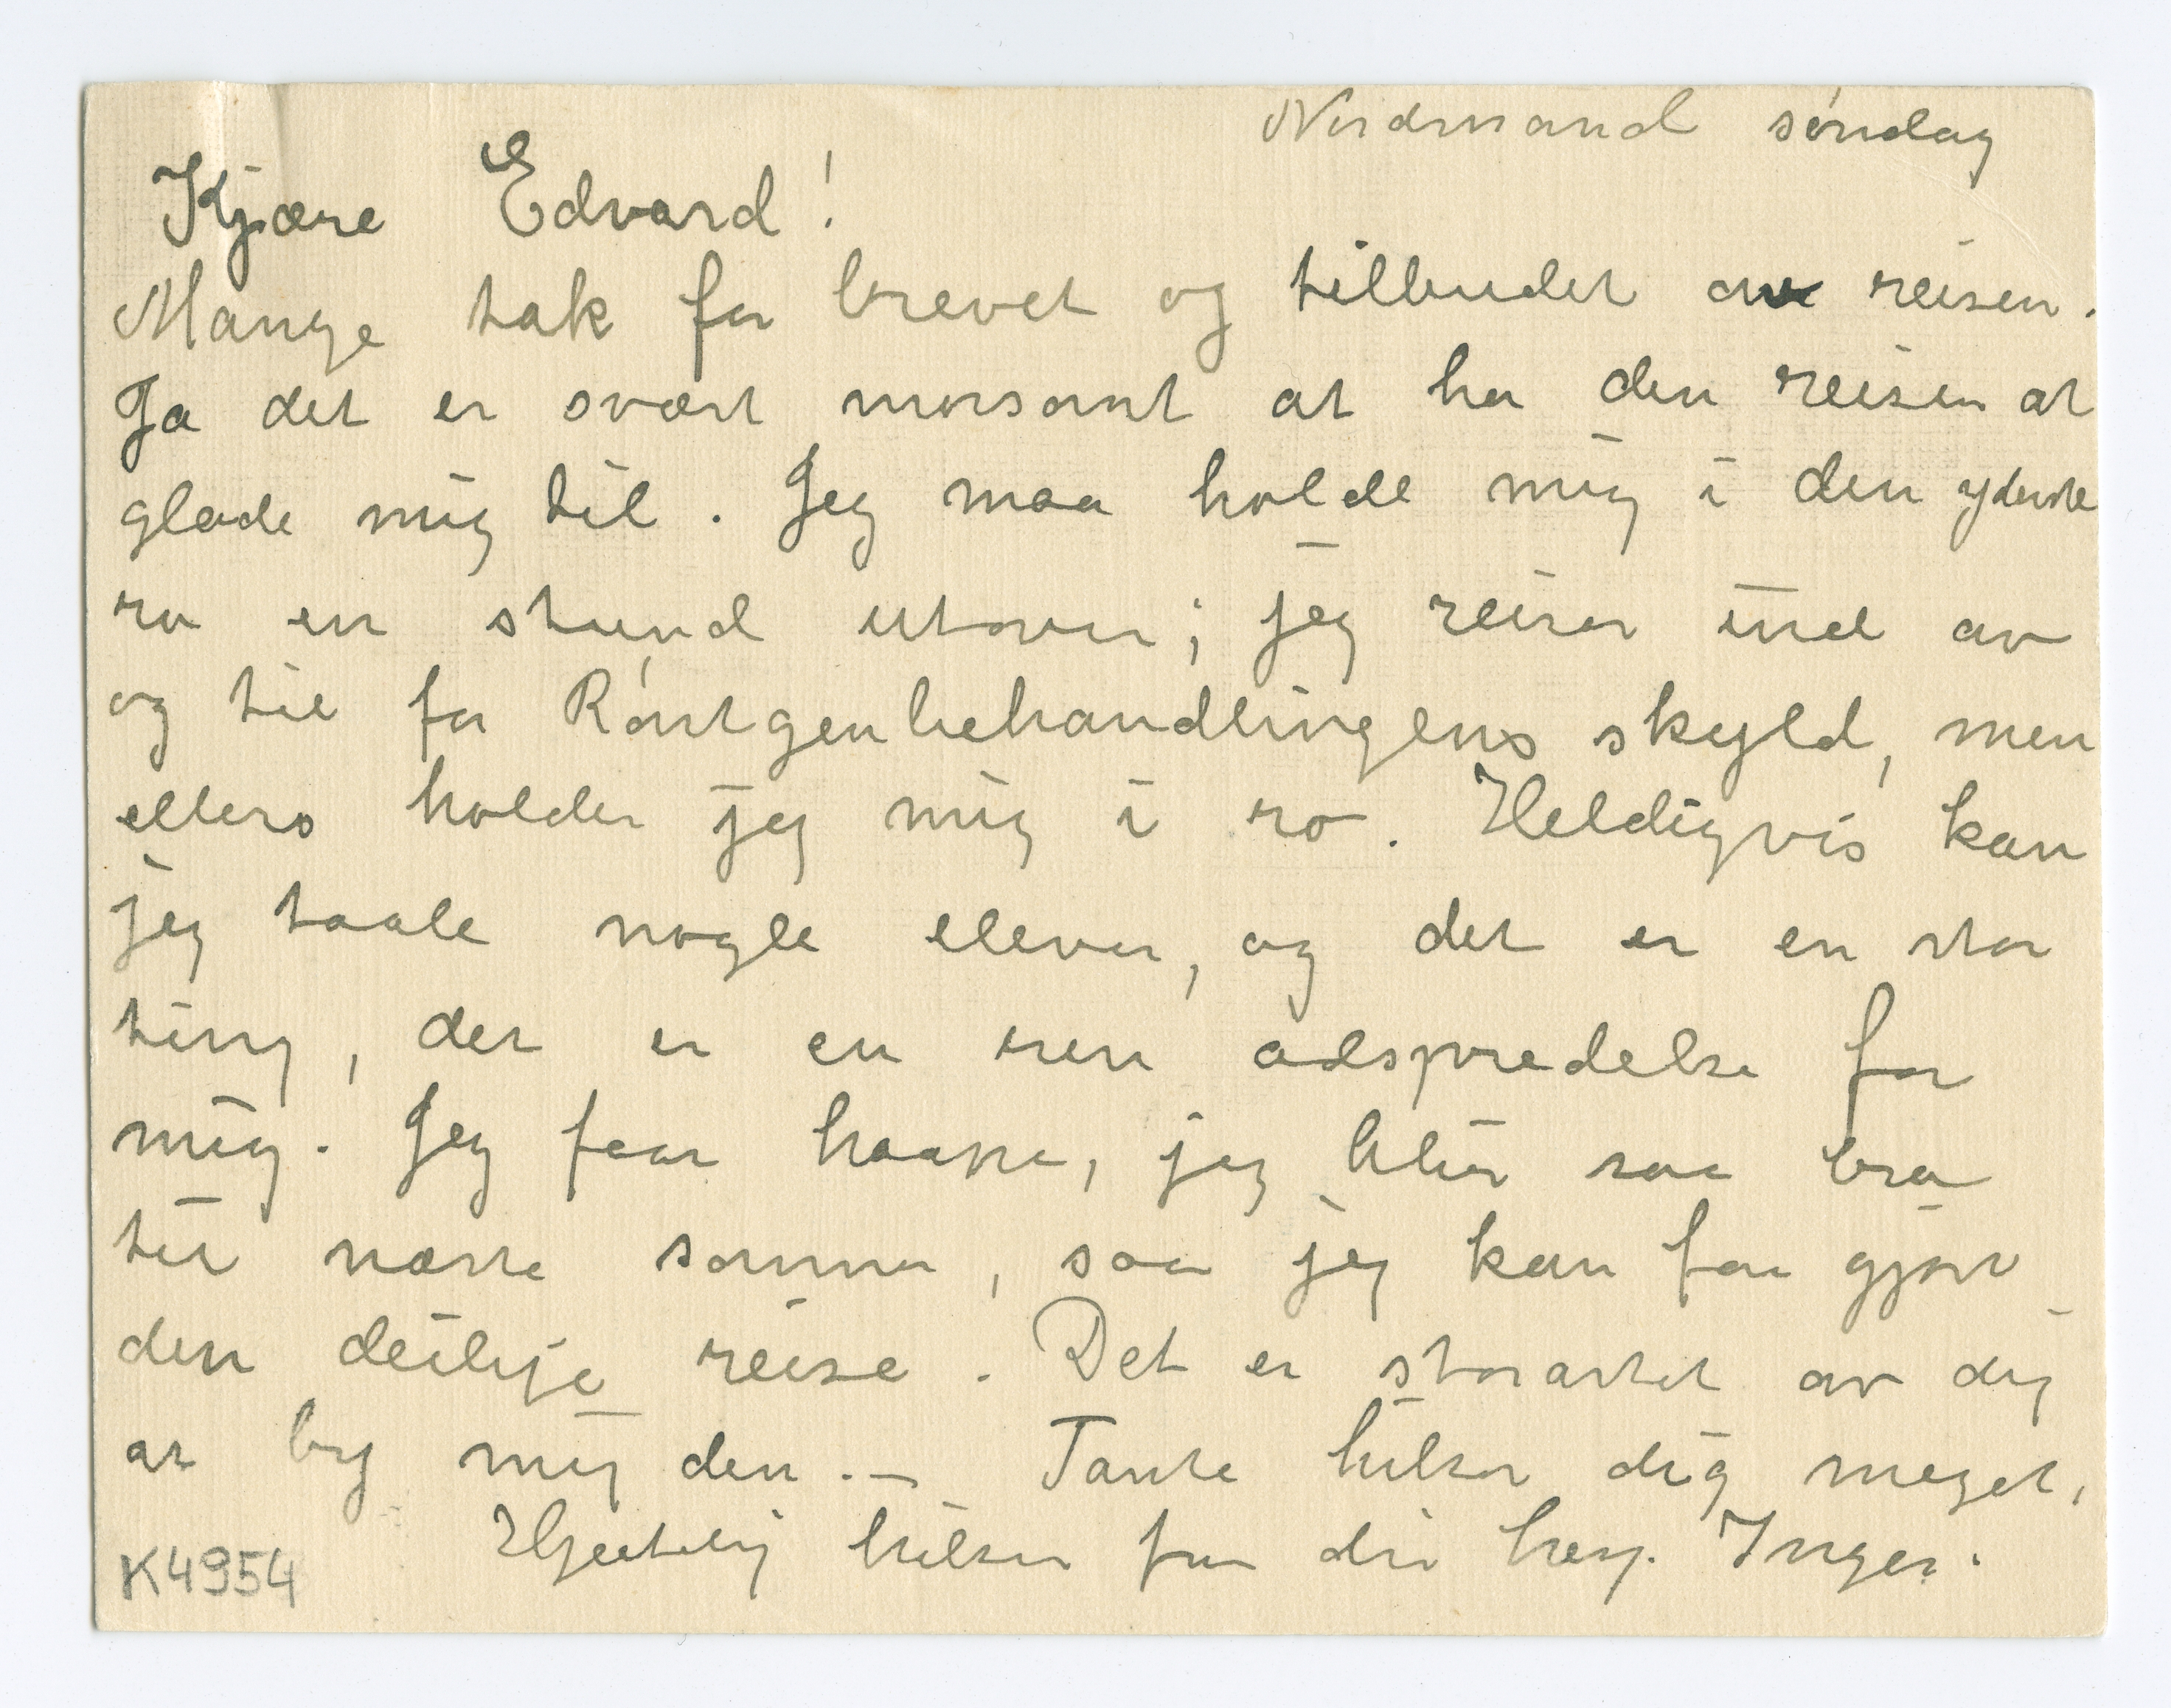 Nordstrand søndag
Kjære Edvard!
Mange tak for brevet og tilbudet om reisen.
Ja det er svært morsomt at ha den reisen at
glæde mig til. Jeg maa holde mig i den yderste
ro en stund utover; jeg reiser ind av
og til for Røntgenbehandlingens skyld, men
ellers holder jeg mig i ro. Heldigvis kan
jeg taale nogle elever, og det er en stor
ting, det er en ren adspredelse for
mig. Jeg faar haape, jeg blir saa bra
til næste sommer, saa jeg kan faa gjort
den deilige reise. Det er storartet av dig
at by mig den. — Tante hilser dig meget,
Hjertelig hilsen fra din heng. Inger.
K4954